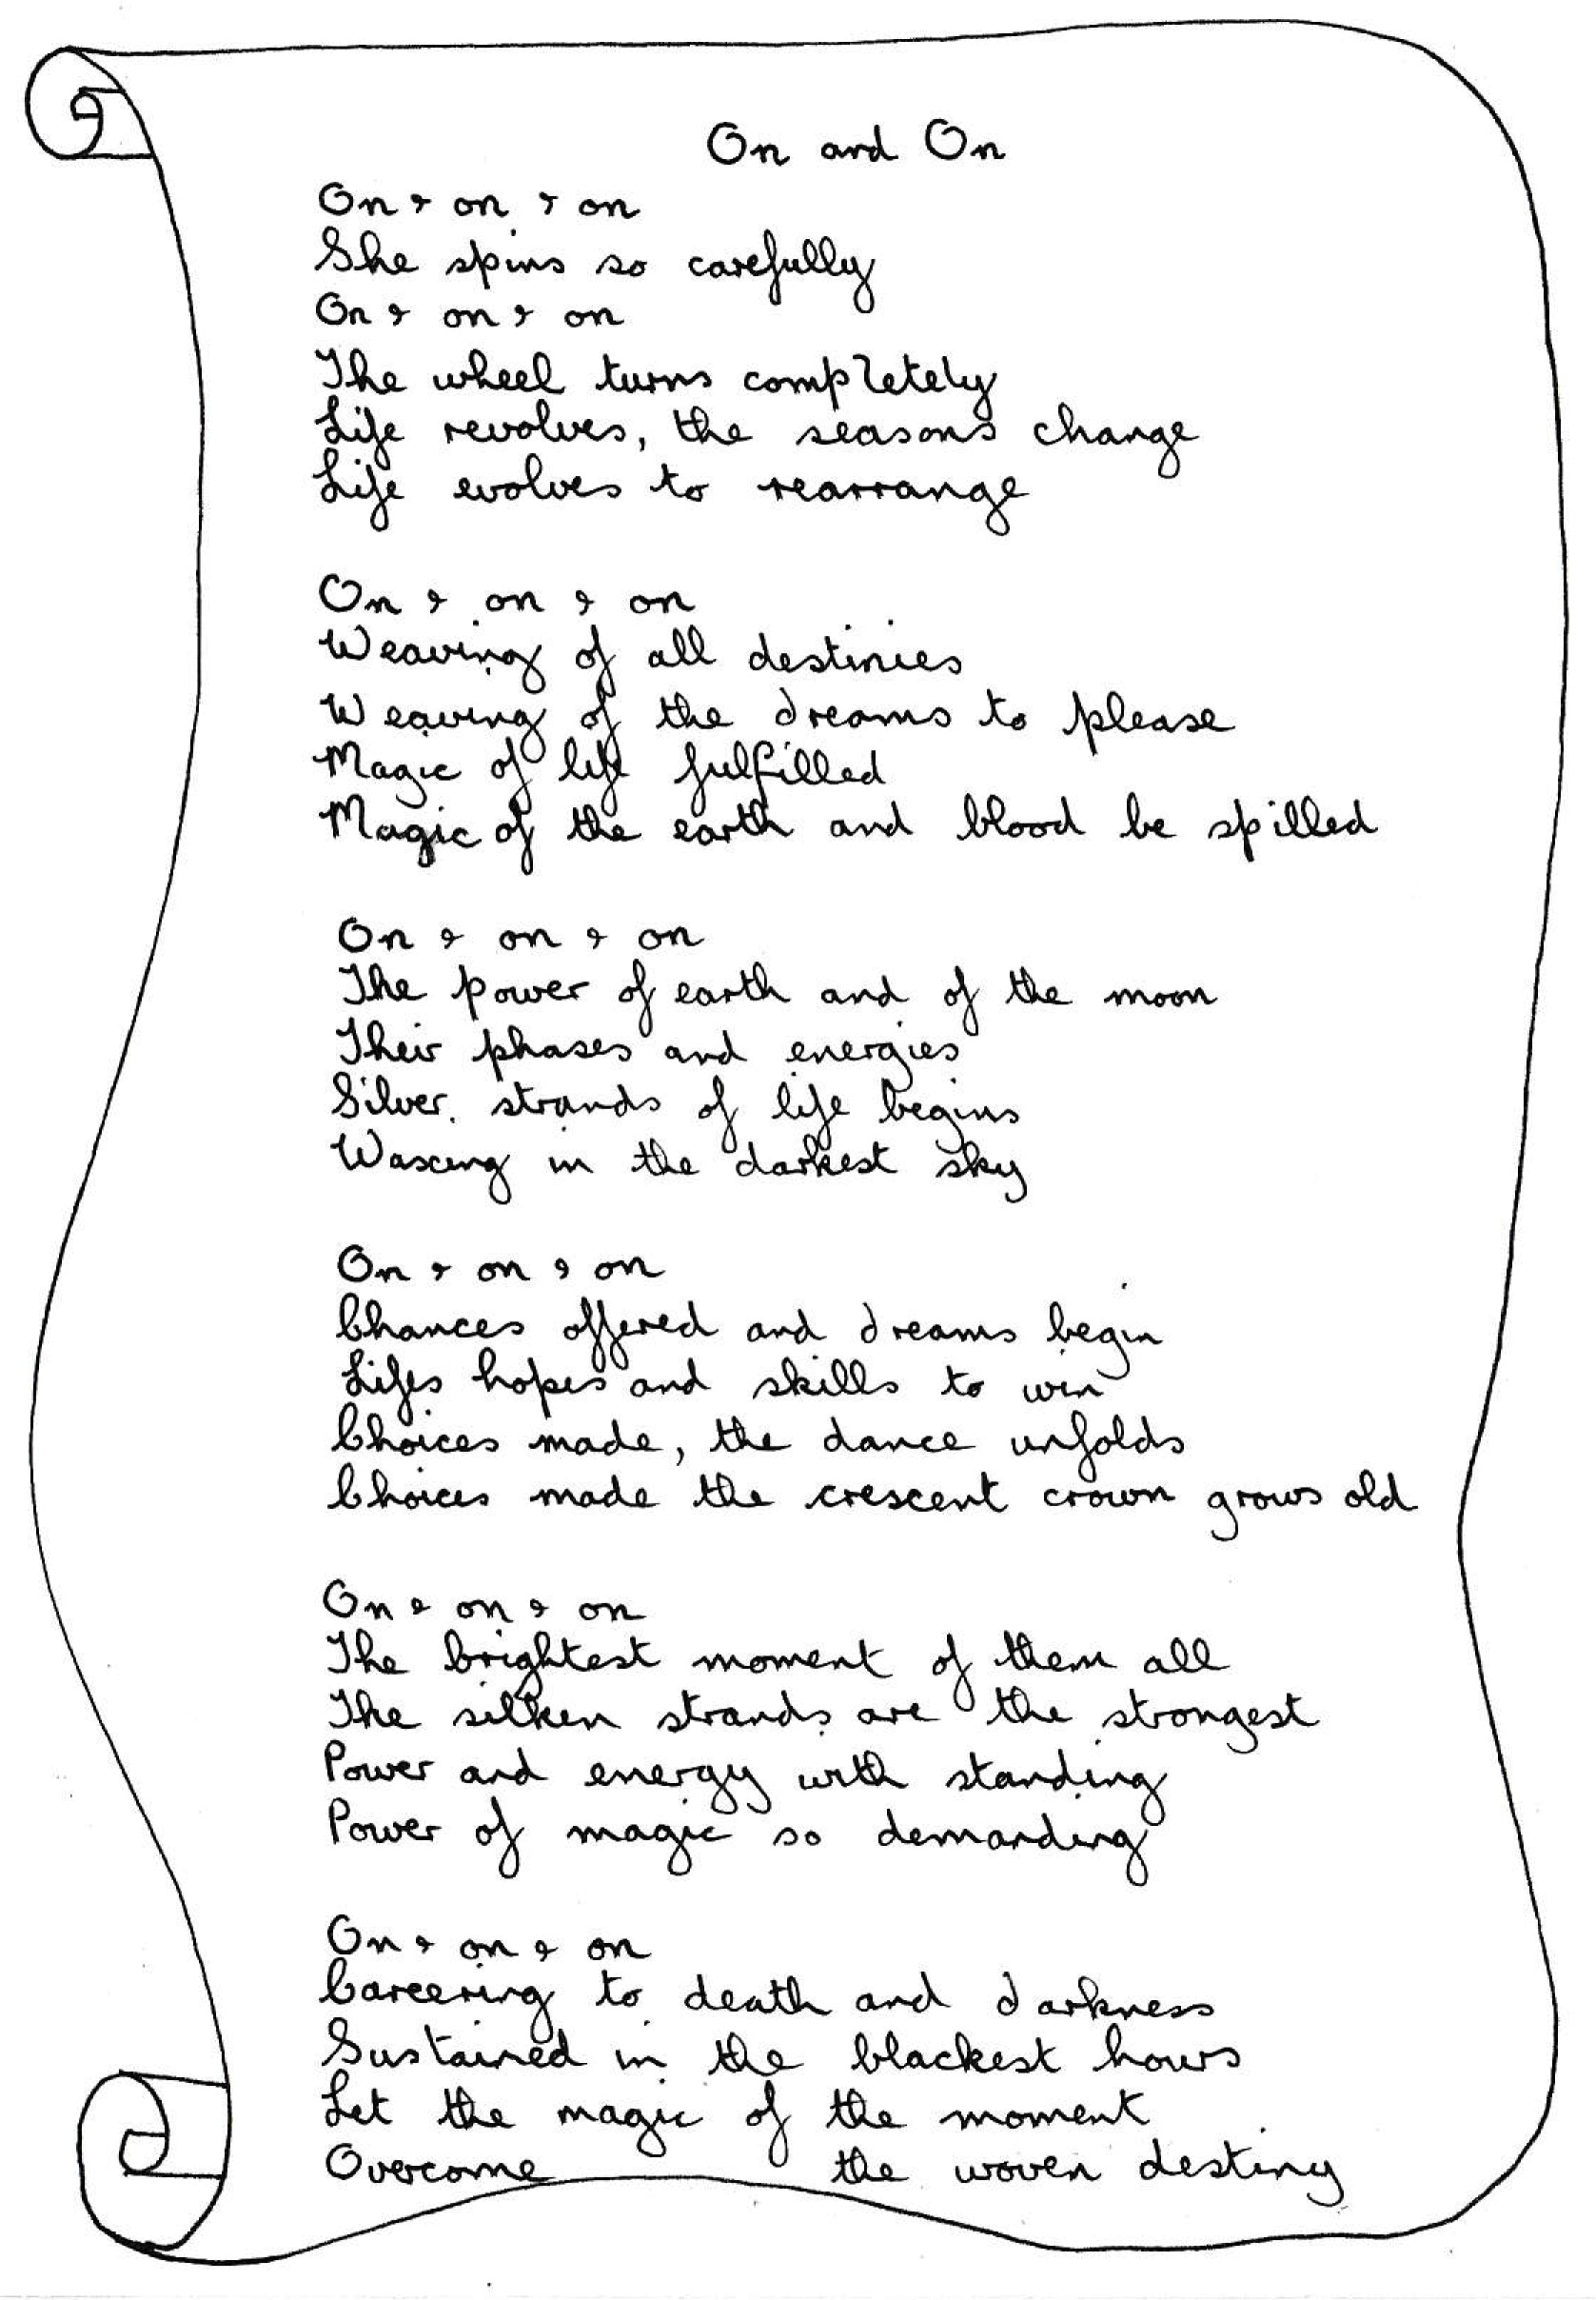 On and On
On & on & on
She spins so carefully
On & on & on
The wheel turns completely
Life revolves, the seasons change
Life evolves to rearrange
On & on & on
Weaving of all destinies
Weaving of the dreams to please
Magic of life fulfilled
Magic of the earth and blood be spilled
On & on & on
The power of earth and of the moon
Their phases and energies
Silver strands of life begins
Waxing in the darkest sky
On & on & on
Chances offered and dreams begin
Lifes hopes and skills to win
Choices made, the dance unfolds
Choices made the crescent crown grows old
On & on & on
The brightest moment of them all
The silken strands are the strongest
Power and energy with standing
Power of magic so demanding
On & on & on
Careering to death and darkness
Sustained in the blackest hours
Let the magic of the moment
Overcome the woven destiny